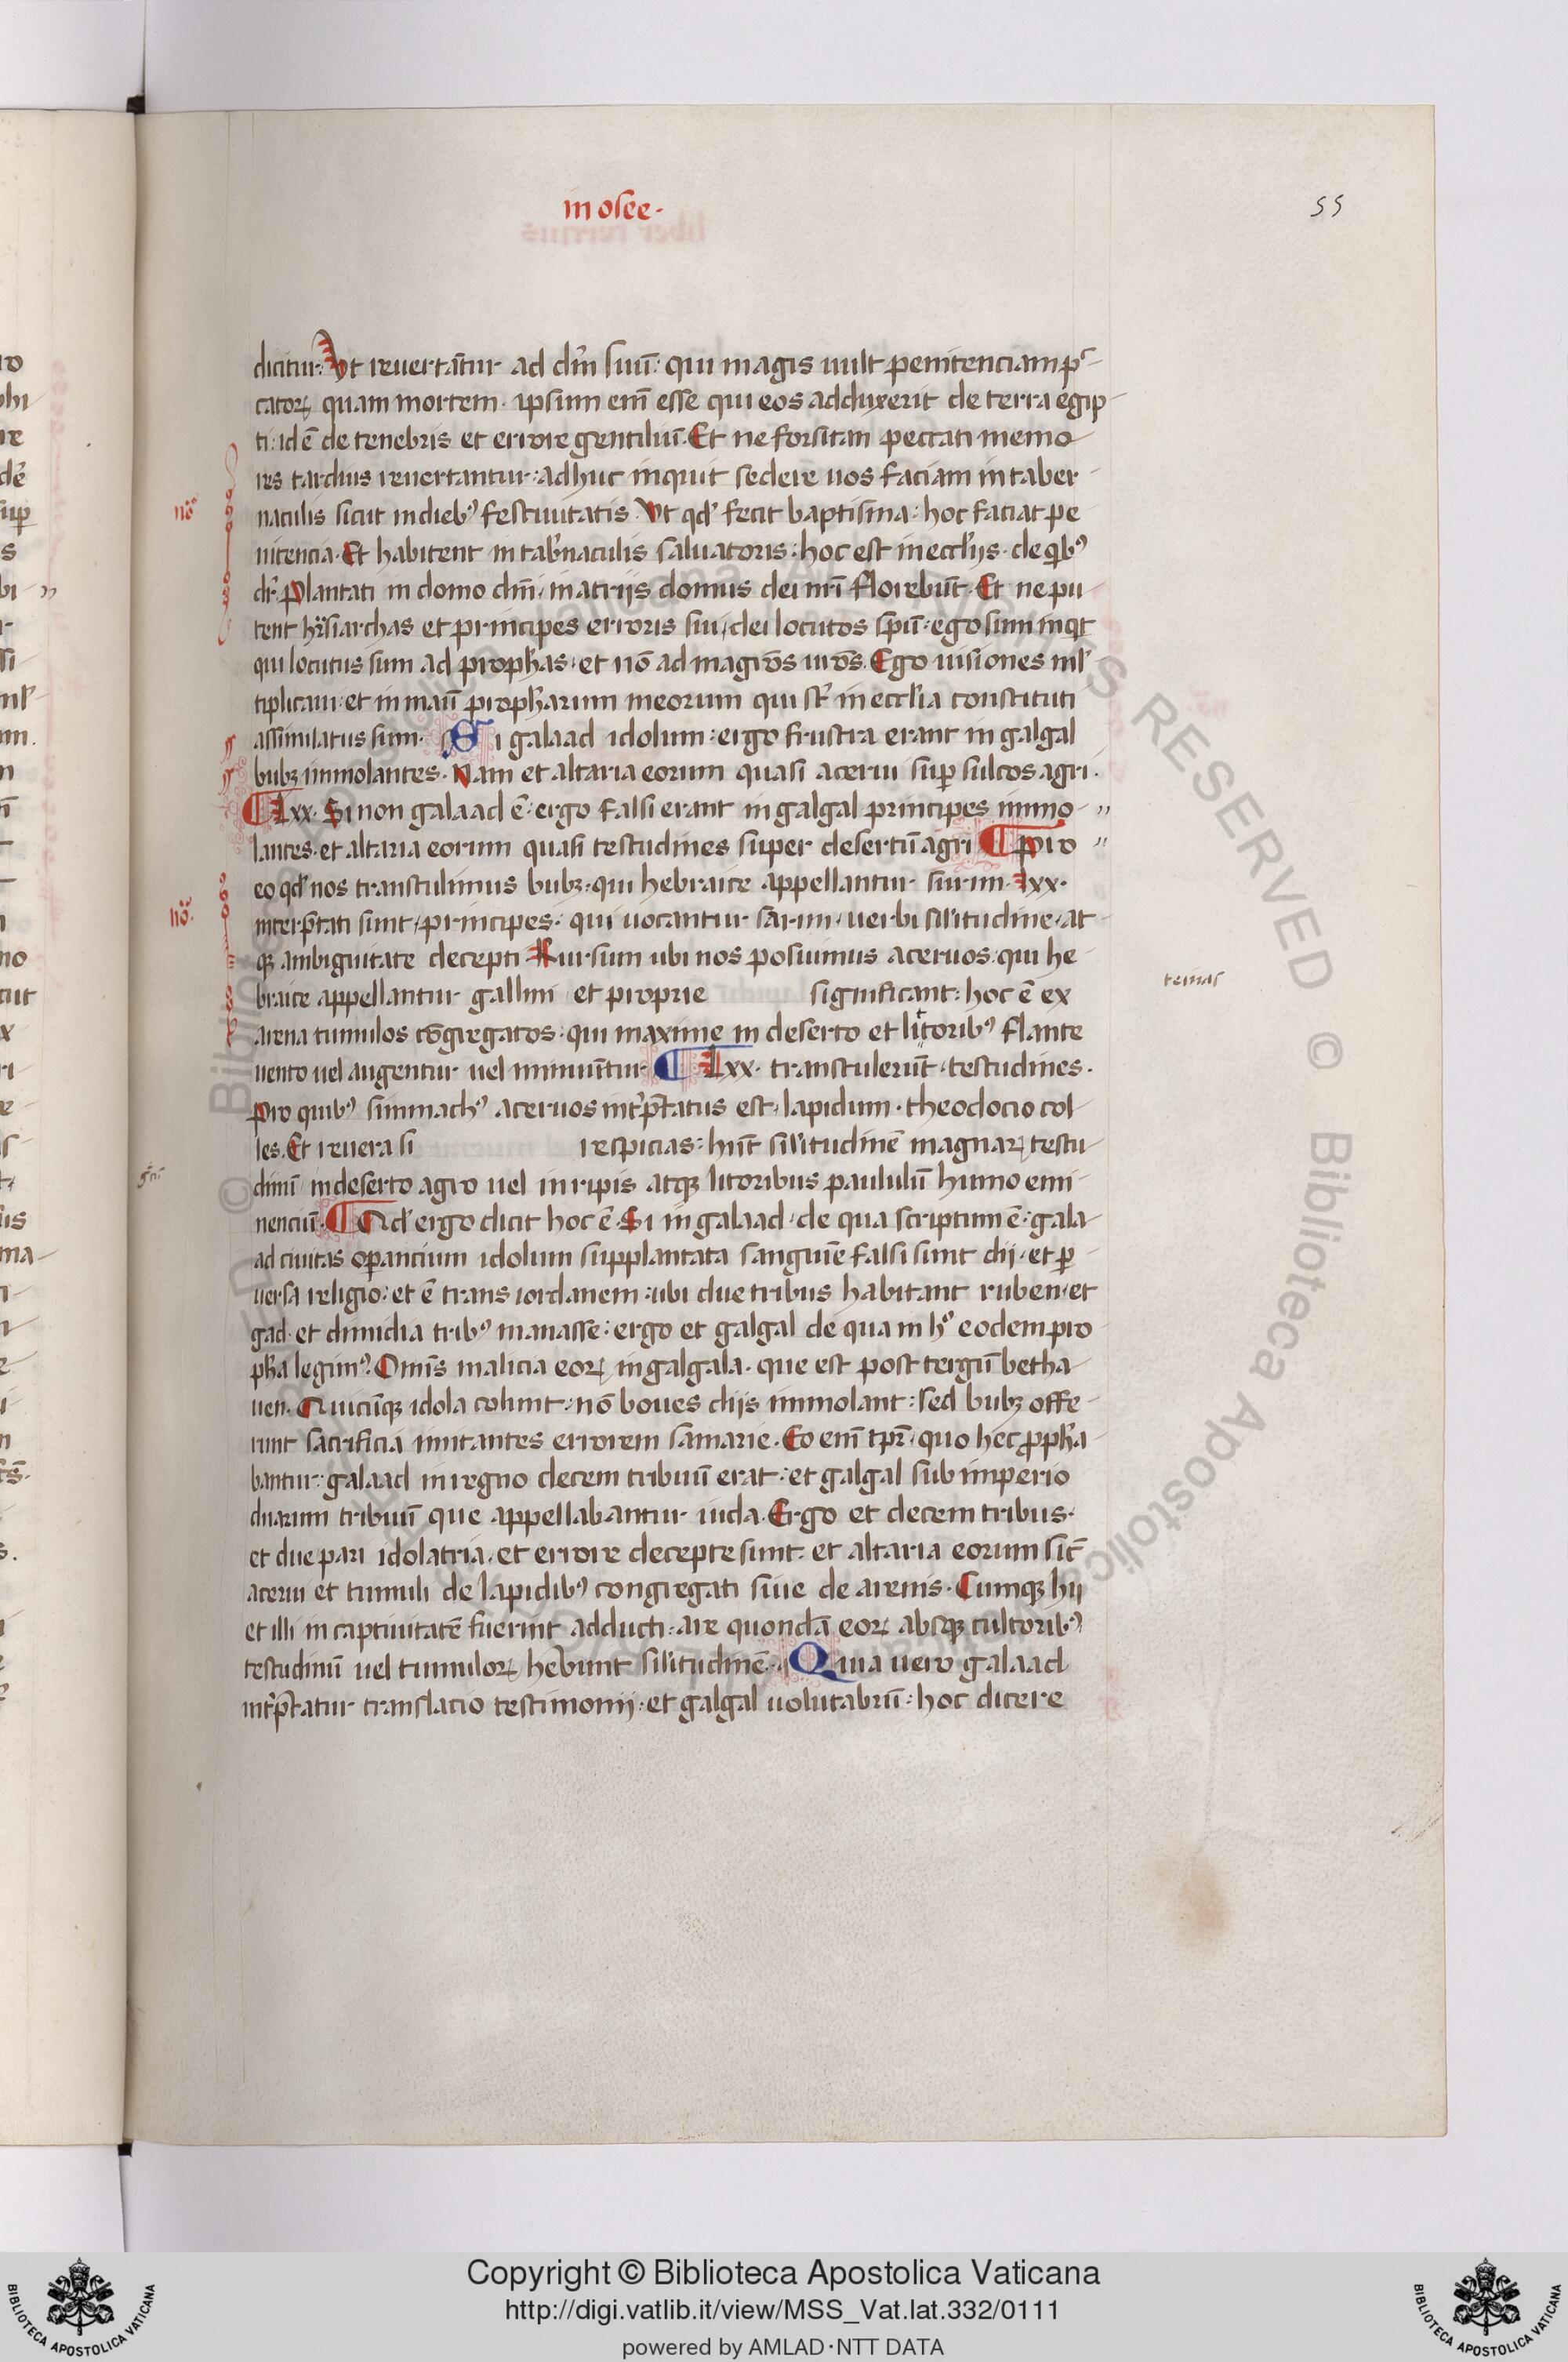 in osee.
55
dicitur: Ut reuertãtur ad dm̃ suũ: qui magis uult penitenciam pc̃
catoꝝ quam mortem. ipsum em̃ esse qui eos adduxerit de terra egip
ti: id ẽ de tenebris et errore gentiliũ. Et ne forsitan peccati memo
res tardius reuertantur: adhuc inquit sedere uos faciam in taber
no͞
naculis sicut in diebꝰ festiuitatis. Ut qd̛ fecit baptisma: hoc faciat pe
nitencia. Et habitent in tab̛naculis saluatoris: hoc est in eccl̛ijs. de qͥbꝰ
dr̃. Plantati in domo dm̃, in atrijs domus dei nr̃i florebũt. Et ne pu
tent hr̃siarchas et principes erroris sui, dei locutos sp̃ũ: ego sum inqͥt
qui locutus sum ad proph̃as, et nõ ad magr̃os ur̃os. Ego uisiones ml̛
tiplicaui: et in manũ proph̃arum meorum qui st̃ in eccl̛ia constituti
assimilatus sum. Si galaad idolum: ergo frustra erant in galgal
bubꝫ immolantes. Nam et altaria eorum quasi acerui suꝑ sulcos agri.
¶ Lxx. Si non galaad ẽ: ergo falsi erant in galgal principes immo
lantes. et altaria eorum quasi testudines super desertũ agri ¶ Pro
eo qd̛ nos transtulimus bubꝫ. qui hebraice appellantur surim. Lxx.
no͞.
interp̃tati sunt, principes. qui uocantur sarim, uerbi sil̛itudine, at
qꝫ ambiguitate decepti Rursum ubi nos posuimus aceruos. qui he
braice appellantur gallim et proprie significant: hoc ẽ ex
arena tumulos cõgregatos: qui maxime in deserto et litoribꝰ flante
uento uel augentur uel minuũtur ¶ Lxx. transtulerũt, testudines.
Pro quibꝰ simmachꝰ aceruos int̛p̃tatus est, lapidum. theodocio col
les. Et reuera si respicias: hñt sil̛itudinẽ magnaꝝ testu
dinũ in deserto agro uel in ripis atqꝫ litoribus paululũ humo emi
nenciũ. ¶ Qd̛ ergo dicit hoc ẽ. Si in galaad, de qua scriptum ẽ: gala
ad ciuitas oꝑancium idolum supplantata sanguĩe falsi sunt dij, et ꝑ
uersa religio: et ẽ trans iordanem: ubi due tribus habitant ruben, et
gad. et dimidia tribꝰ manasse: ergo et galgal de qua in hͦ eodem pro
ph̃a legimꝰ. Omĩs malicia eoꝝ in galgala. que est post tergũ betha
uen. Quicũqꝫ idola colunt: nõ boues dijs immolant: sed bubꝫ offe
runt sacrificia imitantes errorem samarie. Eo em̃ tꝑr̃, quo hec ꝓph̃a
bantur: galaad in regno decem tribuũ erat: et galgal sub imperio
duarum tribuũ que appellabantur iuda. Ergo et decem tribus.
et due pari idolatria, et errore decepte sunt. et altaria eorum sic̃
acerui et tumuli de lapidibꝰ congregati siue de arenis. Cumqꝫ hij
et illi in captiuitatẽ fuerint adducti: are quondã eoꝝ absqꝫ cultoribꝰ
testudinũ uel tumuloꝝ heb̃unt sil̛itudinẽ. Quia uero galaad
int̛p̃tatur translacio testimonij. et galgal uolutabrũ: hoc dicere
Copyright © Biblioteca Apostolica Vaticana
http://digi.vatlib.it/view/MSS_Vat.lat.332/0111
powered by AMLAD·NTT DATA
BIBLIOTECA APOSTOLICA VATICANA
BIBLIOTECA APOSTOLICA VATICANA